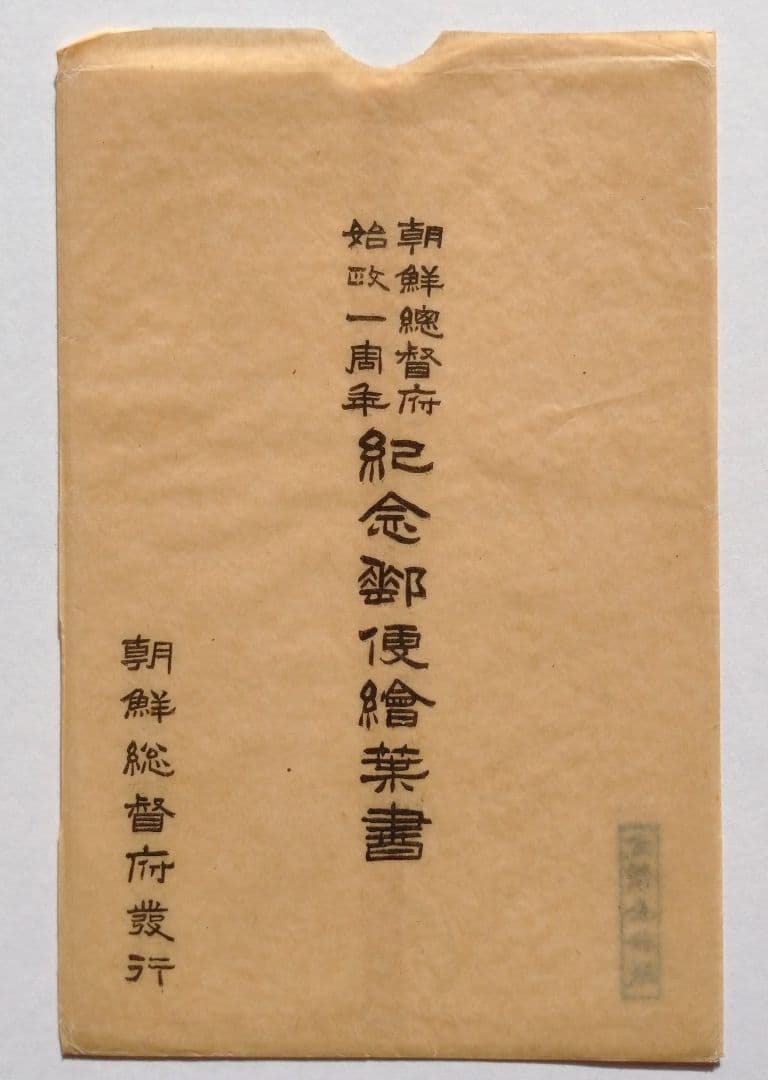 朝鮮總督府
始政一周年
紀念郵便繪葉書
朝鮮総督府發行